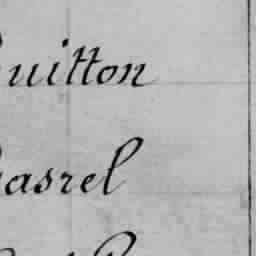 uitton
asrel